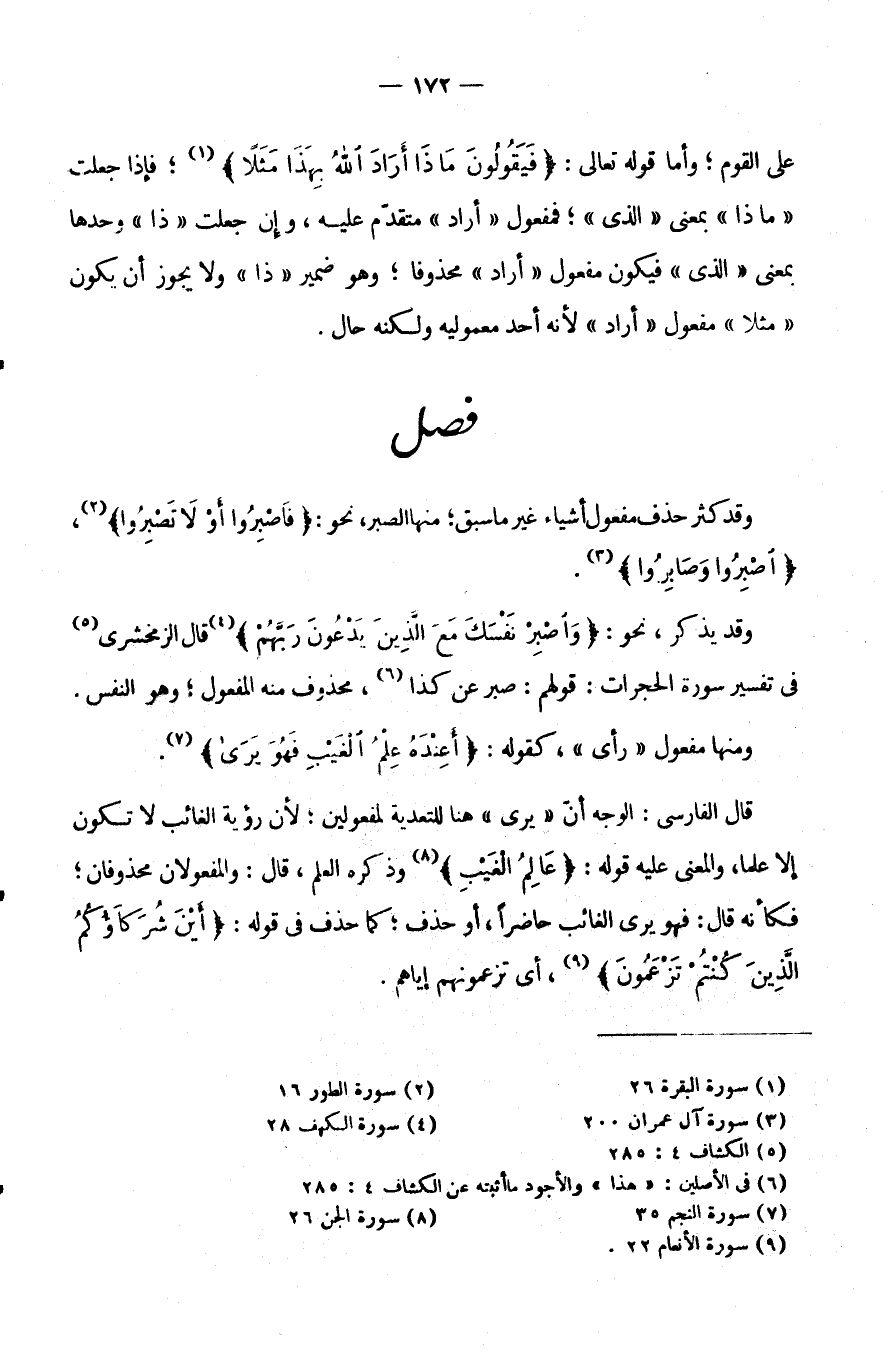 — ١٧٢ —
على القوم ؛ وأما قوله تعالى : ﴿ فَيَقُولُونَ مَا ذَا أَرَادَ ٱللهُ بِهَذَا مَثَلًا ﴾ (١) ؛ فإذا جعلت
« ما ذا » بمعنى « الذى » ؛ فمفعول « أراد » متقدّم عليه ، وإن جعلت « ذا » وحدها
بمعنى « الذى » فيكون مفعول « أراد » محذوفا ؛ وهو ضمير « ذا » ولا يجوز أن يكون
« مثلا » مفعول « أراد » لأنه أحد معموليه ولكنه حال .
فصل
وقد كثر حذف مفعول أشياء غير ما سبق؛ منها الصبر، نحو : ﴿ فَاصْبِرُوا أَوْ لَا تَصْبِرُوا﴾(٢)،
﴿ ٱصْبِرُوا وَصَابِرُوا ﴾ (٣) .
وقد يذكر ، نحو : ﴿ وَٱصْبِرْ نَفْسَكَ مَعَ الَّذِينَ يَدْعُونَ رَبَّهُمْ ﴾(٤) قال الزمخشرى(٥)
فى تفسير سورة الحجرات : قولهم : صبر عن كذا (٦) ، محذوف منه المفعول ؛ وهو النفس .
ومنها مفعول « رأى » ، كقوله : ﴿ أَعِنْدَهُ عِلْمُ ٱلْغَيْبِ فَهُوَ يَرَىٰ ﴾ (٧).
قال الفارسى : الوجه أنّ « يرى » هنا للتعدية لمفعولين ؛ لأن رؤية الغائب لا تكون
إلا علما، والمعنى عليه قوله : ﴿ عَالِمُ الْغَيْبِ ﴾(٨) وذكره العلم ، قال : والمفعولان محذوفان؛
فكأنه قال: فهو يرى الغائب حاضراً ، أو حذف ؛ كما حذف فى قوله : ﴿ أَيْنَ شُرَكَاؤُكُمُ
الَّذِينَ كُنْتُمْ تَزْعُمُونَ ﴾ (٩) ، أى تزعمونهم إياهم .
(١) سورة البقرة ٢٦ (٢) سورة الطور ١٦
(٣) سورة آل عمران ٢٠٠ (٤) سورة الكهف ٢٨
(٥) الكشاف ٤ : ٢٨٥
(٦) فى الأصلين : « هذا » والأجود ما أثبته عن الكشاف ٤ : ٢٨٥
(٧) سورة النجم ٣٥ (٨) سورة الجن ٢٦
(٩) سورة الأنعام ٢٢ .